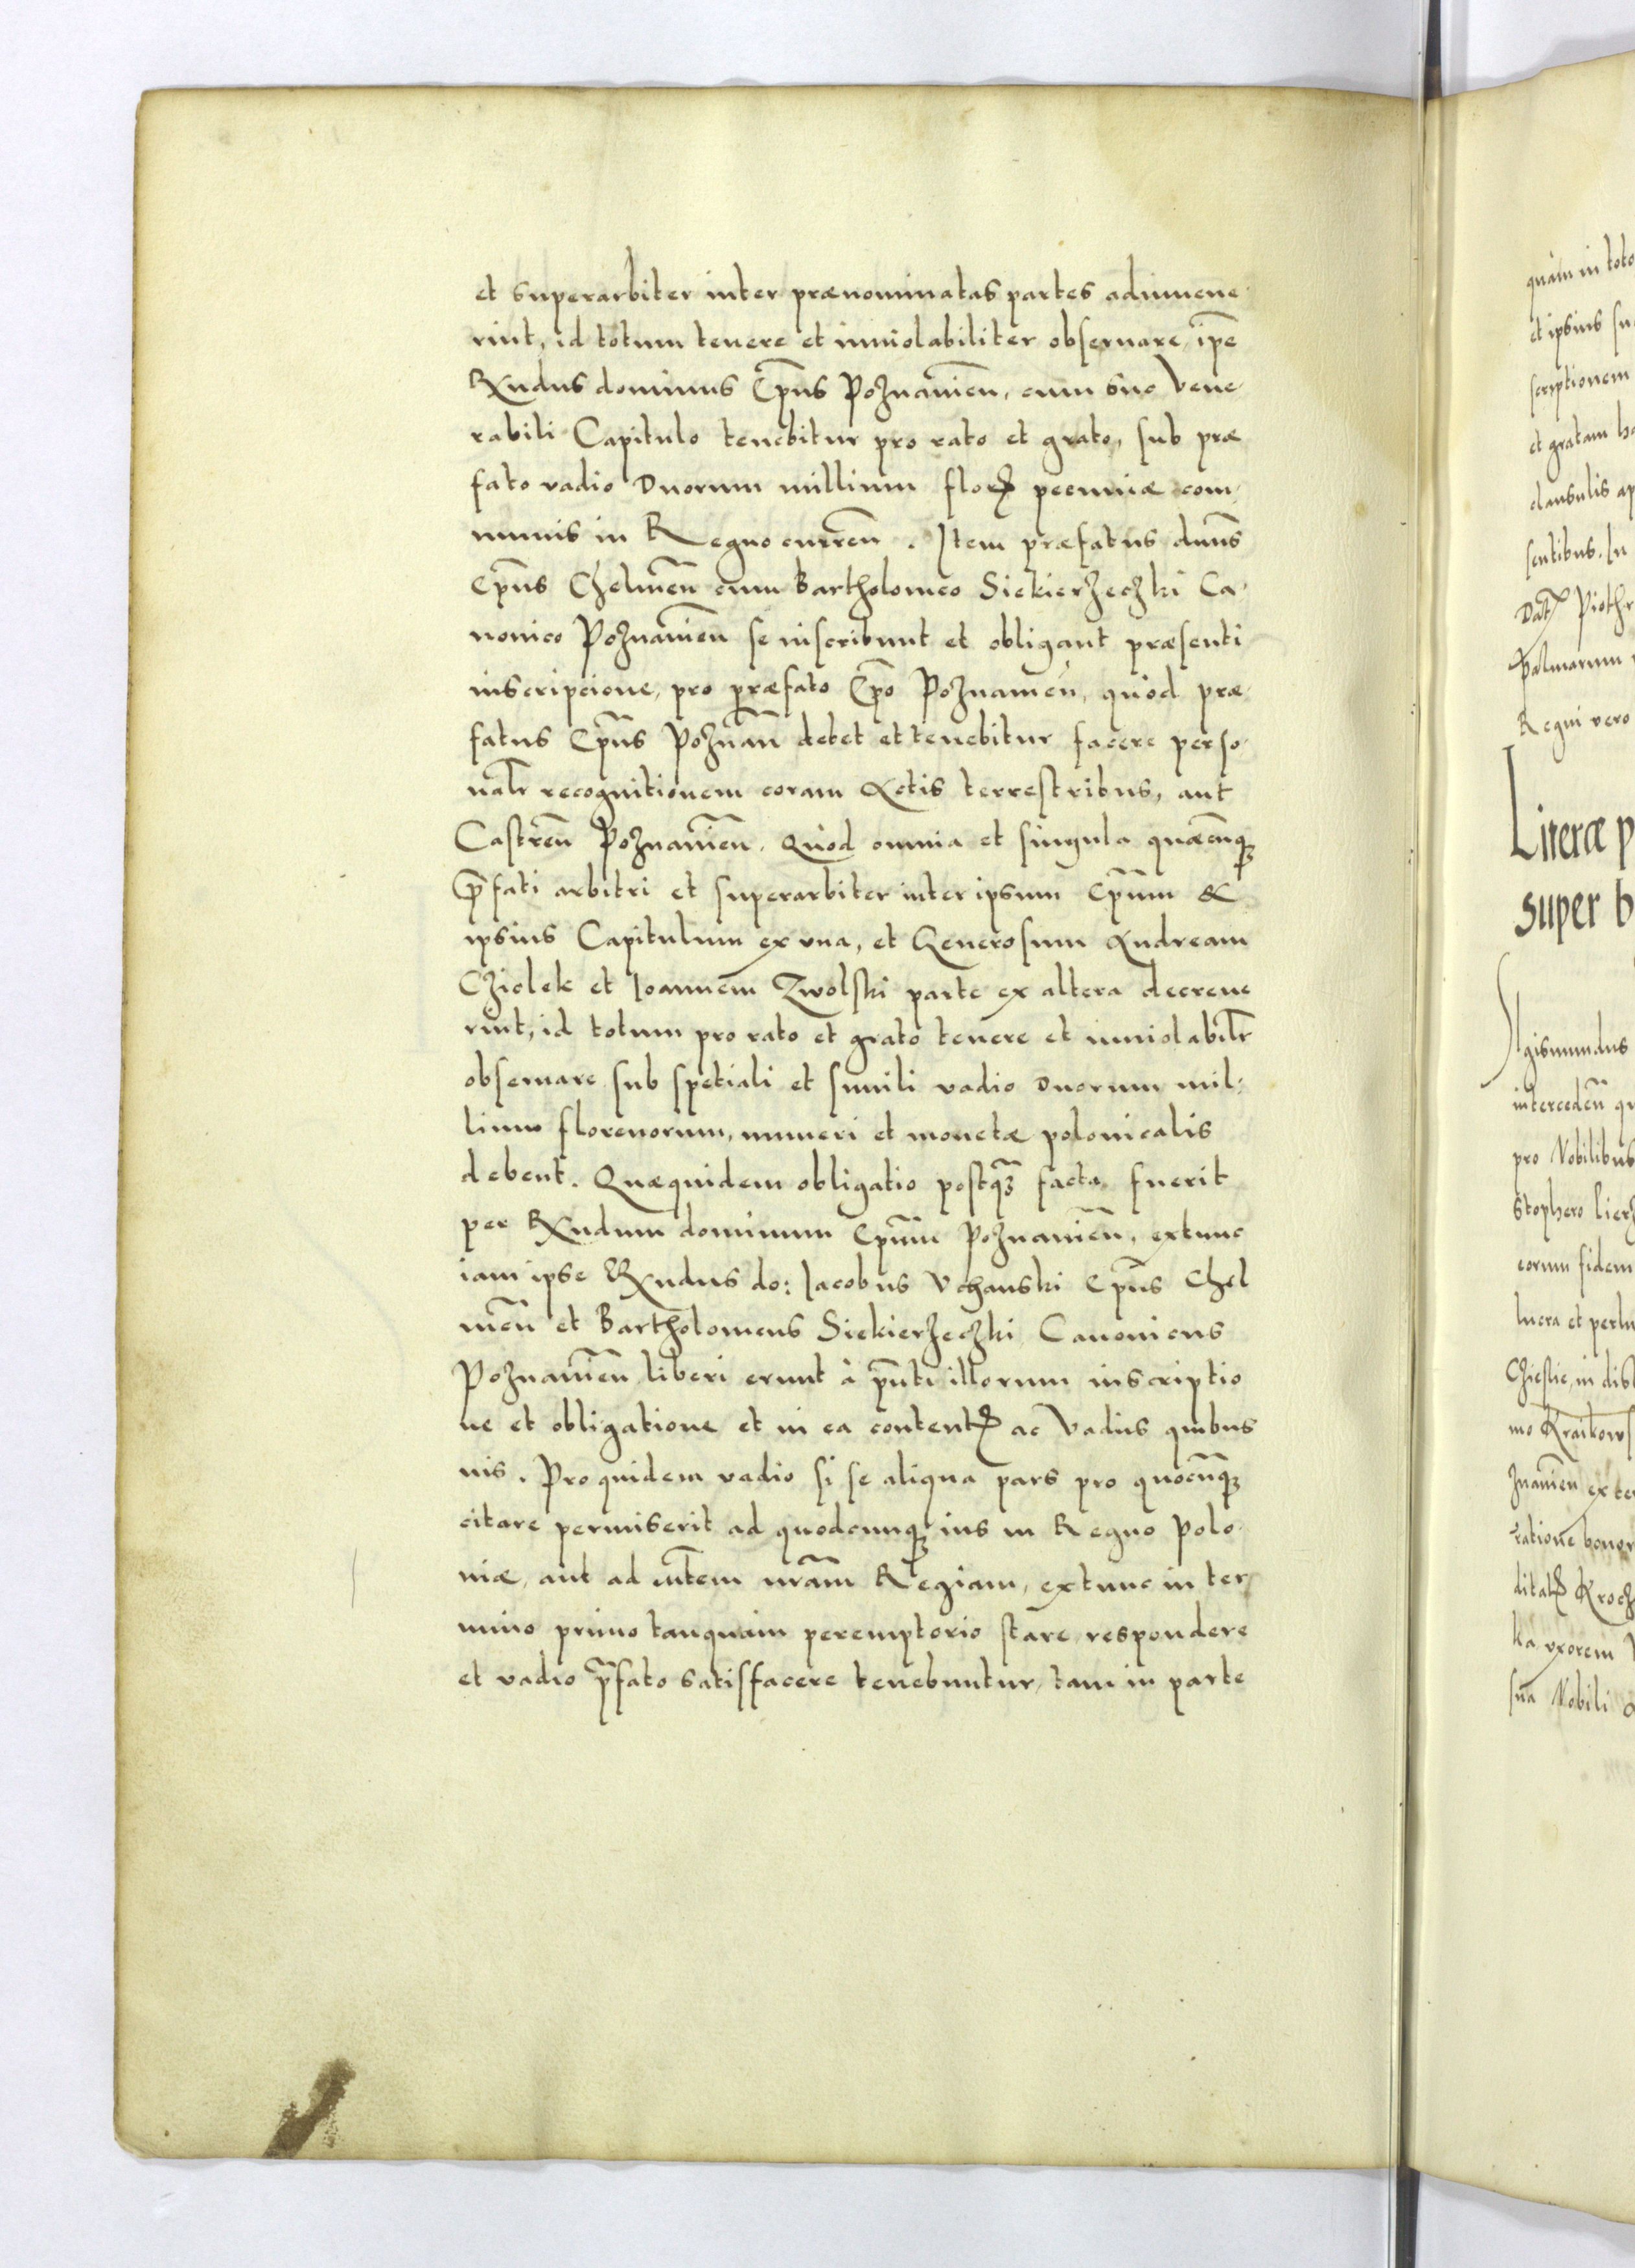 et superarbiter inter prænominatas partes adinuene
rint, id totum tenere et inuiolabiliter obseruare ip̄e
Rx̄ndus dominus Ep̄us Poznanień, cum suo Vene
rabili Capitulo tenebitur pro rato et grato, sub præ
fato vadio Duorum millium floꝝ pecuniæ com
munis in Regno curreñ. Item præfatus dnūs
Ep̄us Chelmeñ cum Bartholomeo Siekierzeczki Ca
nonico Poznanień se inscribunt et obligant præsenti
inscripcione, pro præfato Ep̄o Poznanień, quòd præ
fatus Ep̄us Poznañ debet et tenebitur facere perso
nalr̄ recognitionem coram Actis terrestribus, aut
Castreñ Poznanień. Quòd omnia et singula quæcūqꝫ
p̄fati arbitri et superarbiter inter ipsum Ep̄um &
ipsius Capitulum ex vna, et Generosum Andream
Cziolek et Ioannem Zwolski parte ex altera decreue
rint, id totum pro rato et grato tenere et inuiolabilr̄
obseruare sub spetiali et simili vadio Duorum mil
lium florenorum, numeri et monetæ polonicalis
debent. Quæquidem obligatio postqꝫ̄ facta fuerit
per Rx̄ndum dominum Ep̄um Poznanień, extunc
iam ipse Rx̄ndus do: Iacobus Vchanski Ep̄us Chel
meñ et Bartholomeus Siekierzeczki Canonicus
Poznanień liberi erunt à pn̄ti illorum inscriptio
ne et obligatione et in ea contentꝭ ac Vadijs quibus
uis. Pro quidem vadio si se aliqua pars pro quocūqꝫ
citare permiserit ad quodcunqꝫ ius in Regno Polo
niæ, aut ad cūtem nr̄am Regiam, extunc in ter
mino primo tanquam peremptorio stare respondere
et vadio p̄fato satisfacere tenebuntur, tam in parte
quàm in toto
et ipsius su
scriptionem
et gratam ha
clausulis ap
sentibus. In
Datꝭ Piothr
Palmarum
Regni vero
Literæ p
super b
Sigismundus
intercedeñ qu
pro Nobilibus
stophero
eorum fidem
lucra et perlu
in
mo
znanień exte
ratione bonor
ditatꝭ
ka vxorem
sua Nobili